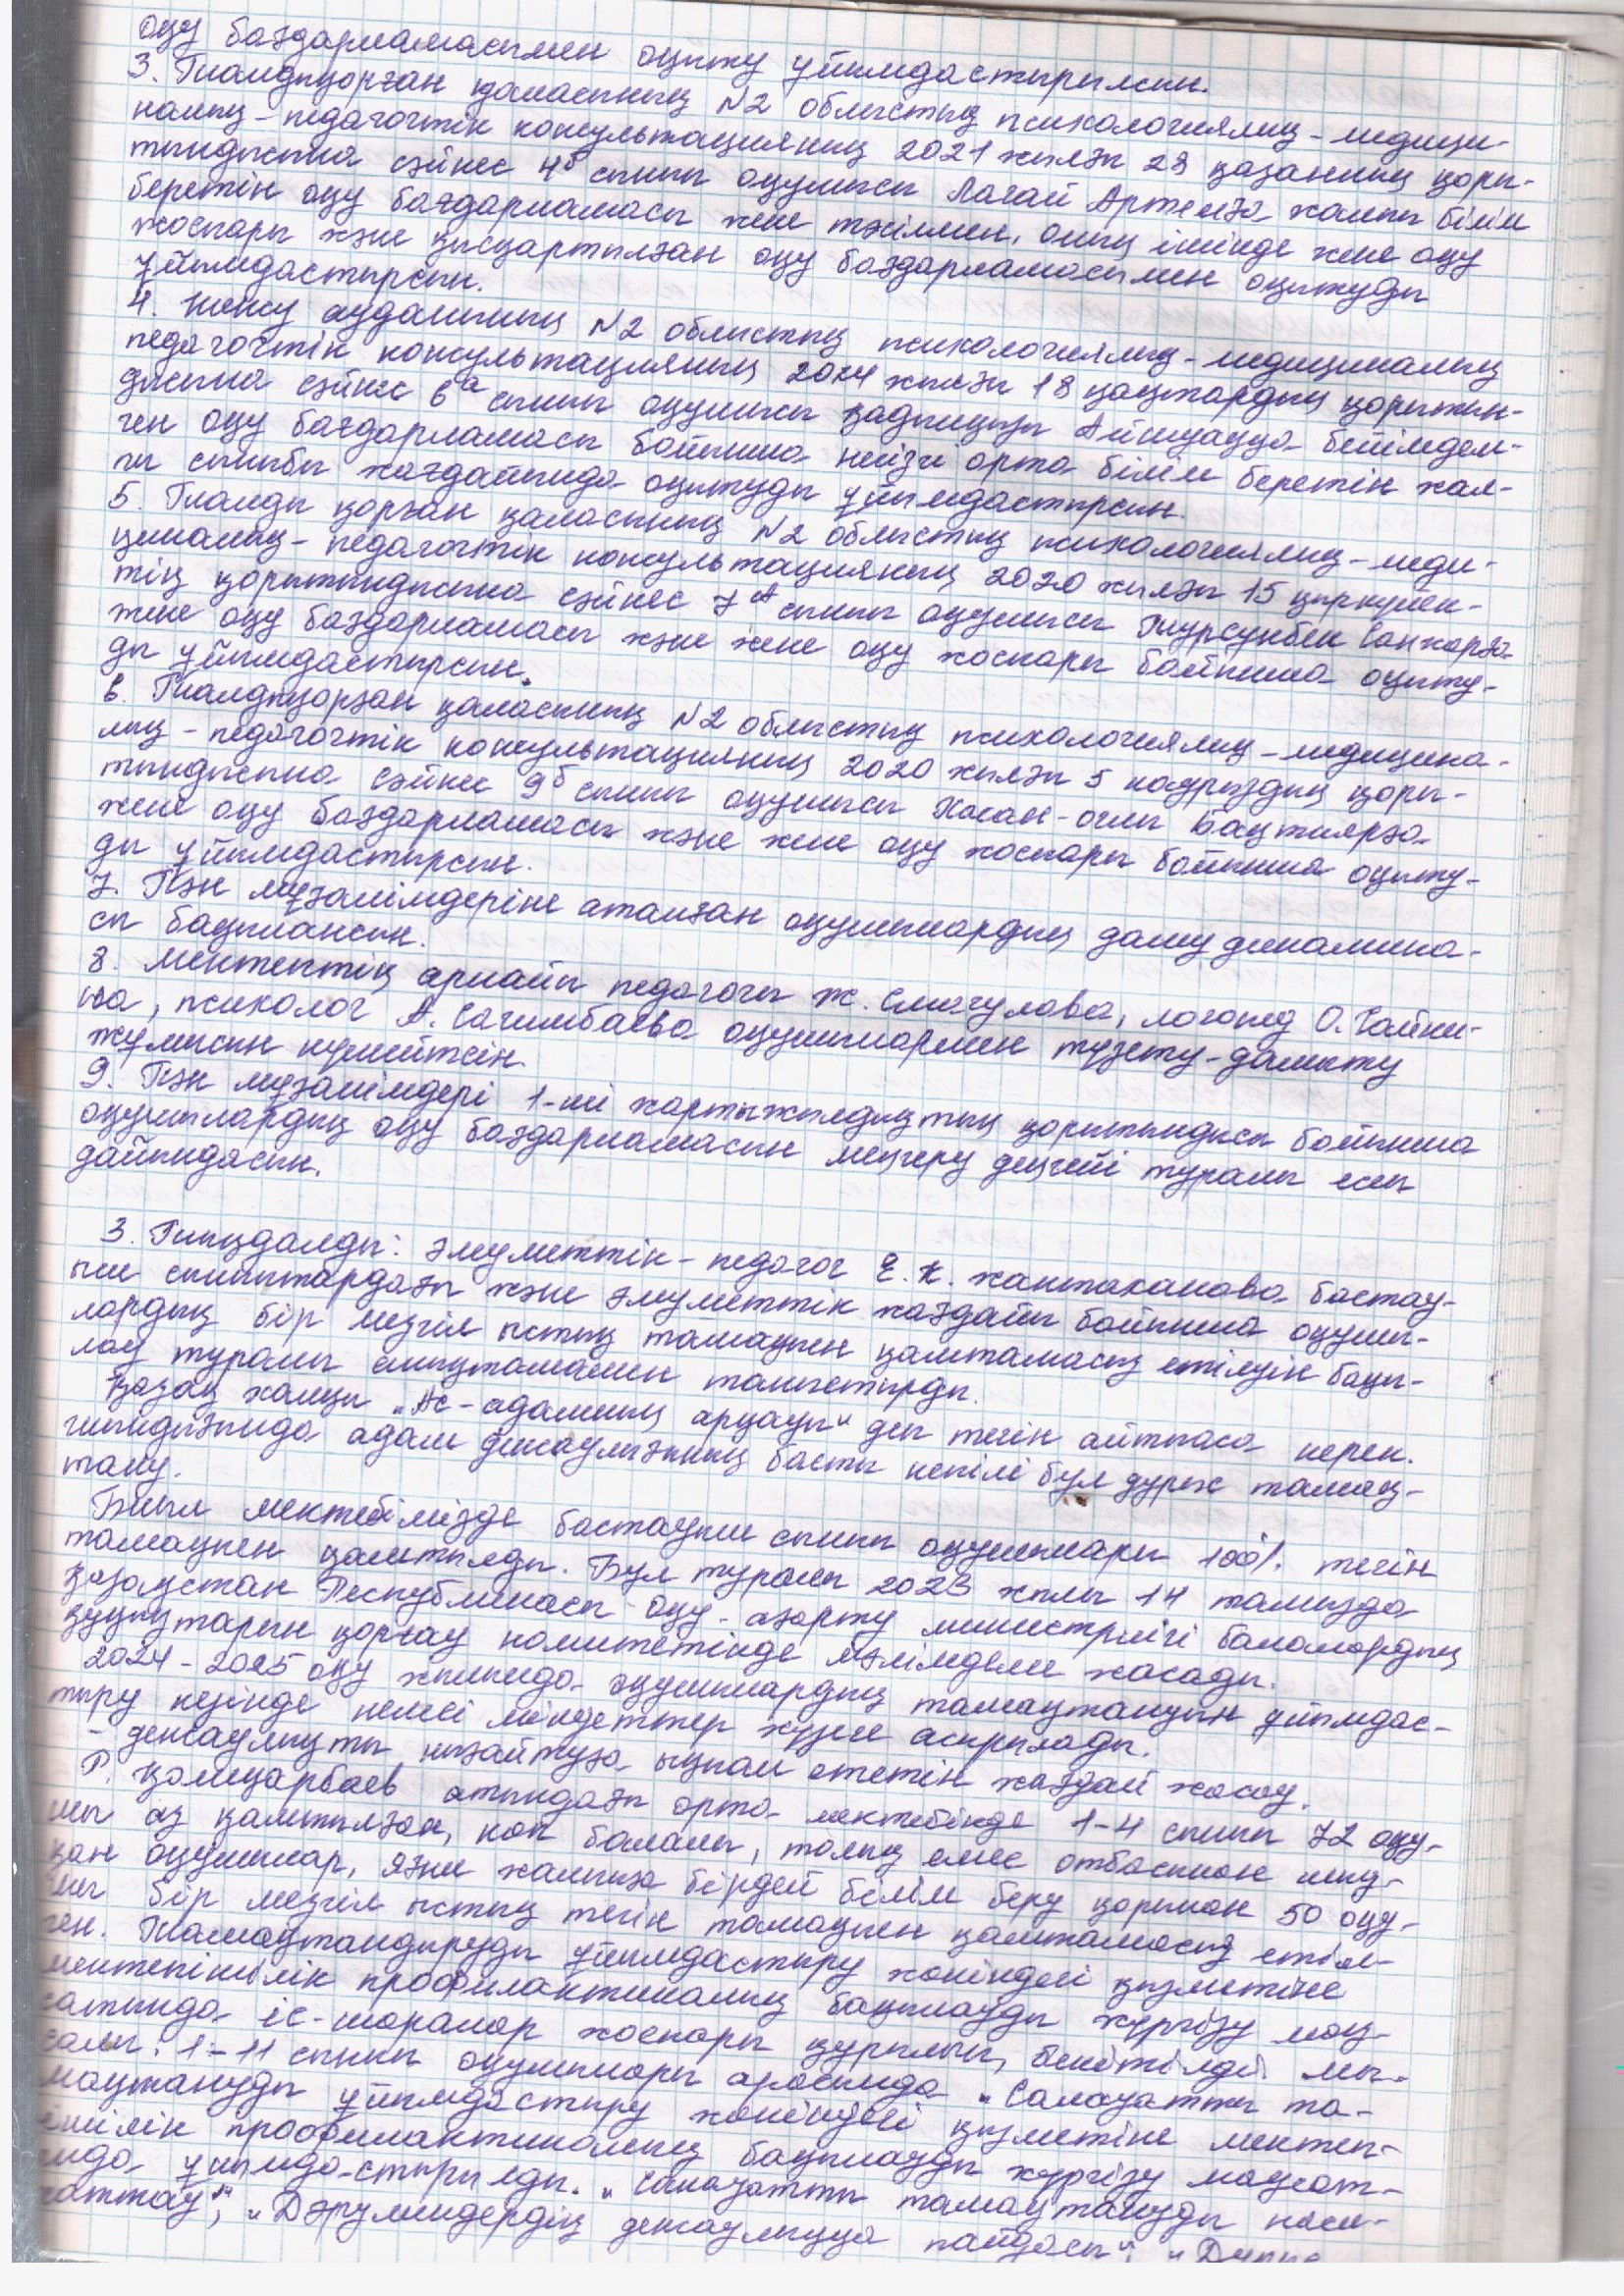 оқу бағдарламасымен оқыту ұйымдастырылсын.
3. Талдықорған қаласының №2 облыстық психологиялық-медици-
налық-педагогтік консультацияның 2021 жылғы 28 қазанның қоры-
тындысына сәйкес 4б сынып оқушысы Лагай Артемға жалпы білім
беретін оқу бағдарламасы жеке тәсілмен, оның ішінде жеке оқу
жоспары және қысқартылған оқу бағдарламасымен оқытуды
ұйымдастырсын.
4. ауданының №2 облыстық психологиялық-медициналық
педагогтік консультацияның 2024 жылғы 18 қаңтардың қорытын-
дысына сәйкес 6а сынып оқушысы Қадыңқызы Айшуаққа бейімдел-
ген оқу бағдарламасы бойынша негізгі орта білім беретін жал-
пы сыныбы жағдайында оқытуды ұйымдастырсын.
5. Талды қорған қаласының №2 облыстық психологиялық-меди-
циналық-педагогтік консультацияның 2020 жылғы 15 қыркүйек-
тің қорытындысына сәйкес 7А сынып оқушысы Турсунбек Санжарға
жеке оқу бағдарламасы және жеке оқу жоспары бойынша оқыту-
ды ұйымдастырсын.
6. Талдықорған қаласының №2 облыстық психологиялық-медицина-
лық-педагогтік консультацияның 2020 жылғы 5 наурыздың қоры-
тындысына сәйкес 9б сынып оқушысы Хасан-оглы Бахтиярға
жеке оқу бағдарламасы және жеке оқу жоспары бойынша оқыту-
ды ұйымдастырсын.
7. Пән мұғалімдеріне аталған оқушылардың даму динамика-
сы бақылансын.
8. Мектептің арнайы педагогы Ж. Смагулова, логопед О. Чайки-
на, психолог А. Сагимбаева оқушылармен түзету-дамыту
жұмысын күшейтсін.
9. Пән мұғалімдері 1-ші жартыжылдықтың қорытындысы бойынша
оқушылардың оқу бағдарламасын меңгеру деңгейі туралы есеп
дайындасын.
3. Тыңдалды: әлеуметтік-педагог Е. К. Жантаканова бастау-
ыш сыныптардағы және әлуметтік жағдайы бойынша оқушы-
лардың бір мезгіл ыстық тамақпен қамтамасыз етілуін бақы-
лау туралы анықтамамен таныстырды.
Қазақ халқы „Ас-адамның арқауы“ деп тегін айтпаса керек.
шындығында адам денсаулығының басты кепілі бұл дұрыс тамақ-
тану.
Биыл мектебімізде бастауыш сынып оқушылары 100% тегін
тамақпен қамтылды. Бұл туралы 2023 жылы 14 тамызда
Қазақстан Республикасы оқу-ағарту министрлігі балалардың
құқықтарын қорғау комитетінде мәлімдеме жасады.
2024-2025 оқу жылында оқушылардың тамақтануын ұйымдас-
тыру кезінде келесі міндеттер жүзеге асырылады.
- денсаулықты нығайтуға ықпал ететін жағдай жасау.
Р. Қошқарбаев атындағы орта мектебінде 1-4 сынып 72 оқу-
шы аз қамтылған, көп балалы, толық емес отбасынан шық-
қан оқушылар, яғни жалпыға бірдей білім беру қорынан 50 оқу-
шы бір мезгіл ыстық тегін тамақпен қамтамасыз етіл-
ген. Тамақтандыруды ұйымдастыру жөніндегі қызметіне
мектепішілік профилактикалық бақылауды жүргізу мақ-
сатында іс-шаралар жоспары құрылып, бекітілді. Мы-
салы: 1-11 сынып оқушылары арасында „Салауатты та-
мақтануды ұйымдастыру жөніндегі қызметіне мектеп-
ішілік профилактикалық бақылауды жүргізу мақсат-
ында ұйымдастырылды. „Салауатты тамақтануды наси-
хаттау“, „Дәрумендердің денсаулыққа пайдасы“,